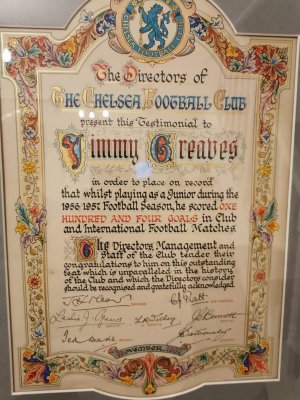 The Directors of
THE CHELSEA FOOTBALL CLUB
present this Testimonial to
Jimmy Greaves
in order to place on record
that whilst playing as a Junior during the
1956 1957 Football Season, he scored ONE
HUNDRED AND FOUR GOALS in Club
and International Football Matches.
The Directors, Management and
Staff of the Club tender their
congratulations to him on his outstanding
feat which is unparalleled in the history
of the Club and which the Directory consider
should be recognised and gratefully acknowledged
NOVEMBER